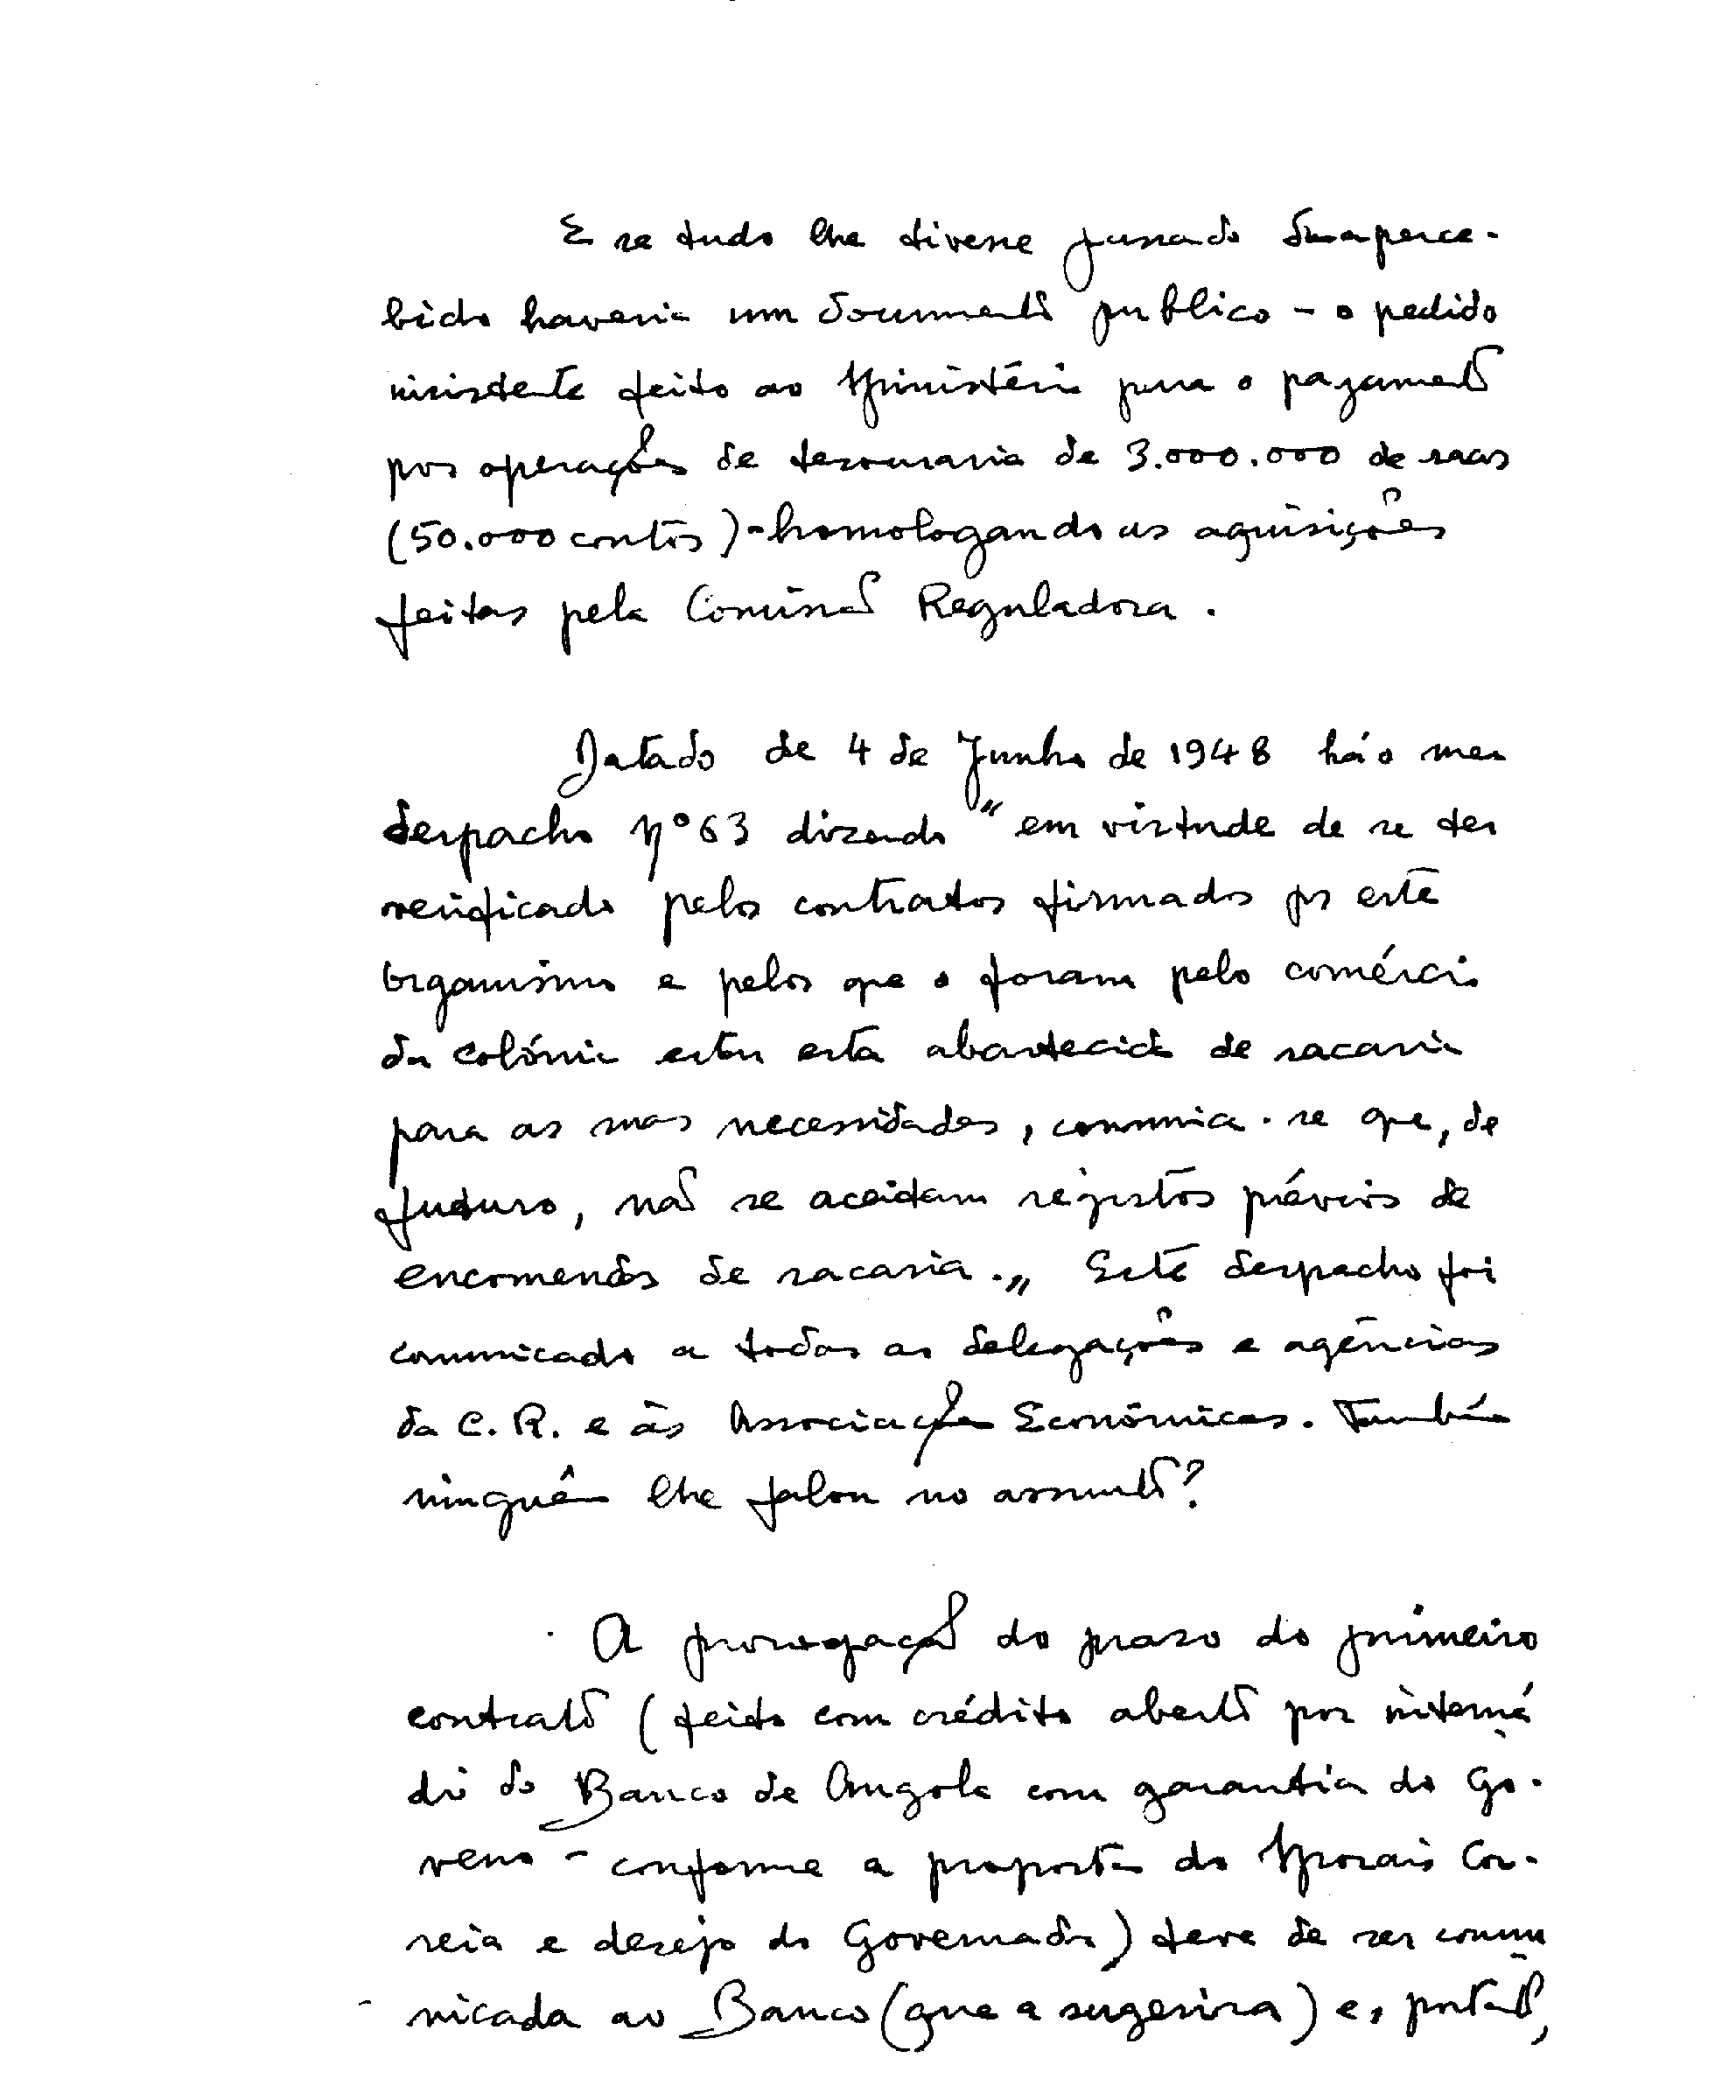 E se tudo lhe tivesse passado desaperce-
bido haveria um documento publico - o pedido
insistente feito ao Ministério para o pagamento
por operações de tesouraria de 3.000.000 de sacos
(50.000 contos) - homologando as aquisições
feitas pela Comissão Reguladora.
Datado de 4 de Junho de 1948 há o meu
despacho nº 63 dizendo "em virtude de se ter
verificado pelos contratos firmados por este
organismo e pelos que o foram pelo comércio
da colónia estar esta abastecida de sacaria
para as suas necessidades, comunica-se que, de
futuro, não se aceitam registos prévios de
encomendas de sacaria." Este despacho foi
comunicado a todas as delegações e agências
da C.R. e às Associações Económicas. Também
ninguém lhe falou no assunto?
A prorrogação do prazo do primeiro
contrato (feito com crédito aberto por intermé
dio do Banco de Angola com garantia do Go-
verno - conforme a proposta do Morais Cor-
reia e desejo do Governador) teve de ser comu
nicada ao Banco (que a sugerira) e, portanto,